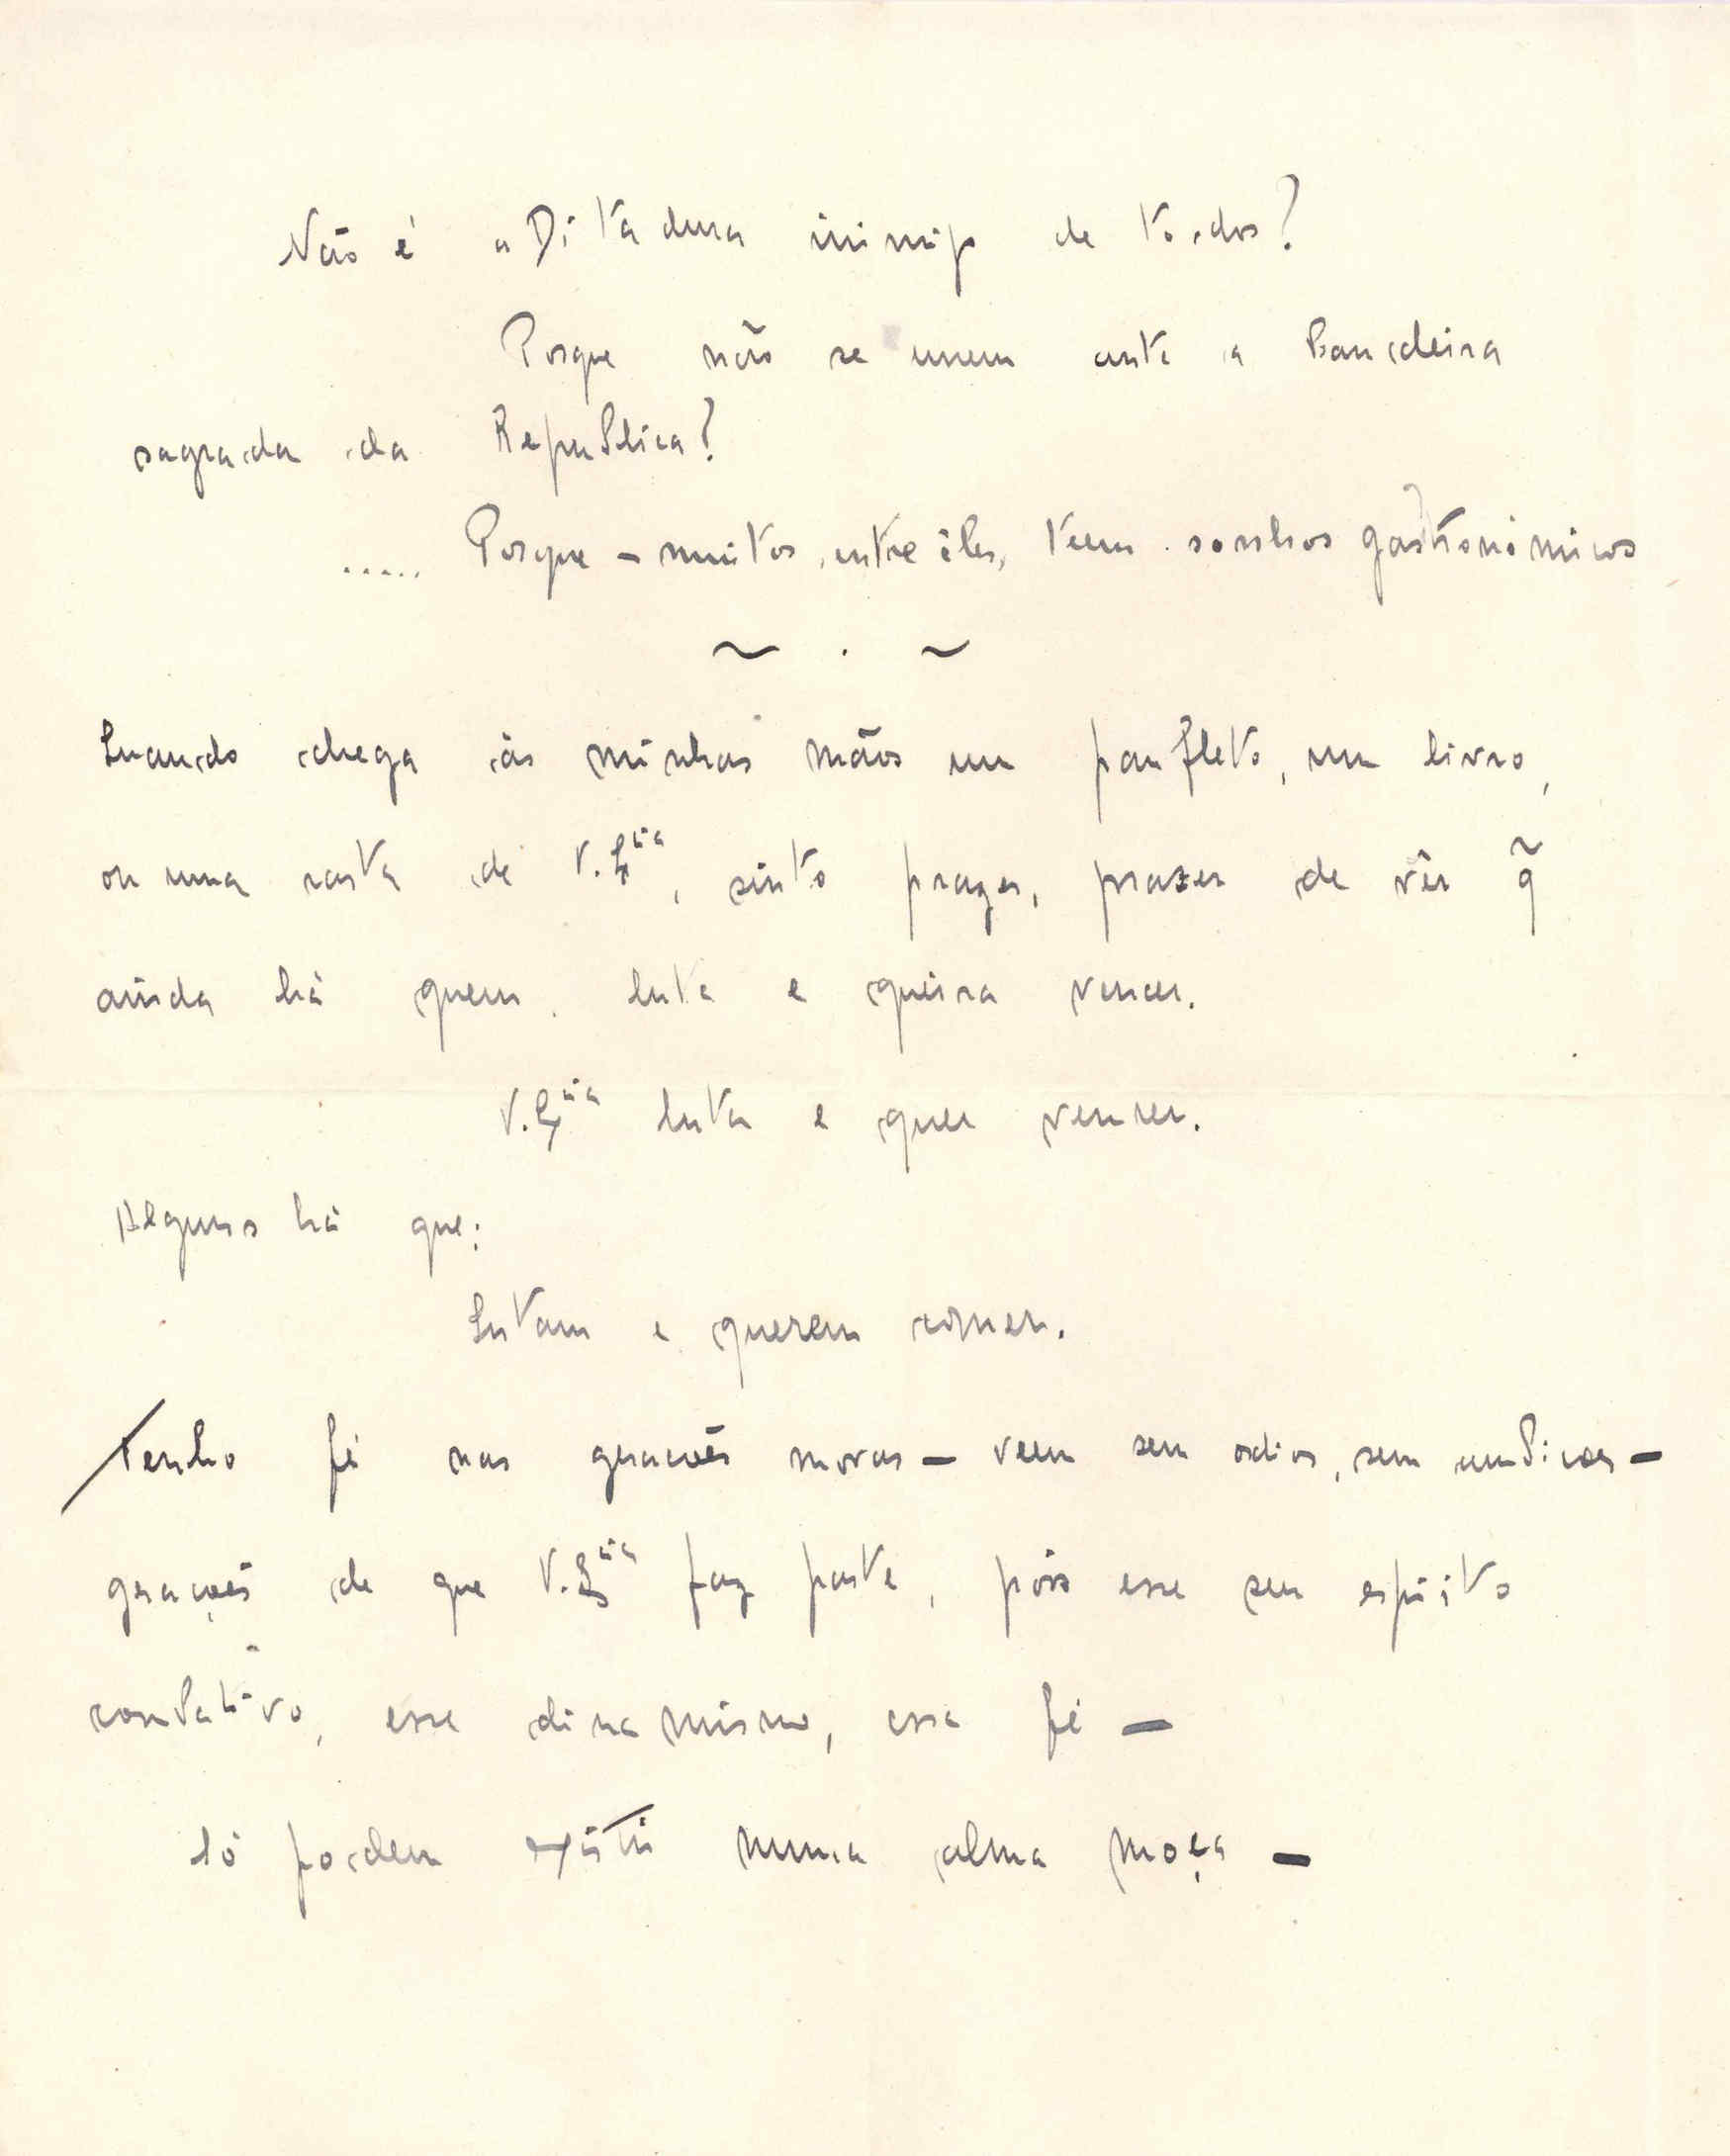 Não é a Ditadura inimigo de todos?
Porque não se unem ante a Bandeira
sagrada da Republica?
..... Porque – muitos, entre êles, teem sonhos gastronómicos
~ . ~
Quando chega ás minhas mãos um panfleto, um livro,
ou uma carta de V. Exia, sinto prazer, prazer de vêr q̃
ainda há quem lute e queira vencer.
V. Exia luta e quer vencer.
Alguns há que:
Lutam e querem comer.
Tenho fé nas gerações novas – veem sem odios, sem ambições –
gerações de que V. Exia faz parte, pois esse seu espirito
combativo, esse dinamismo, essa fé –
só podem existir numa alma moça –